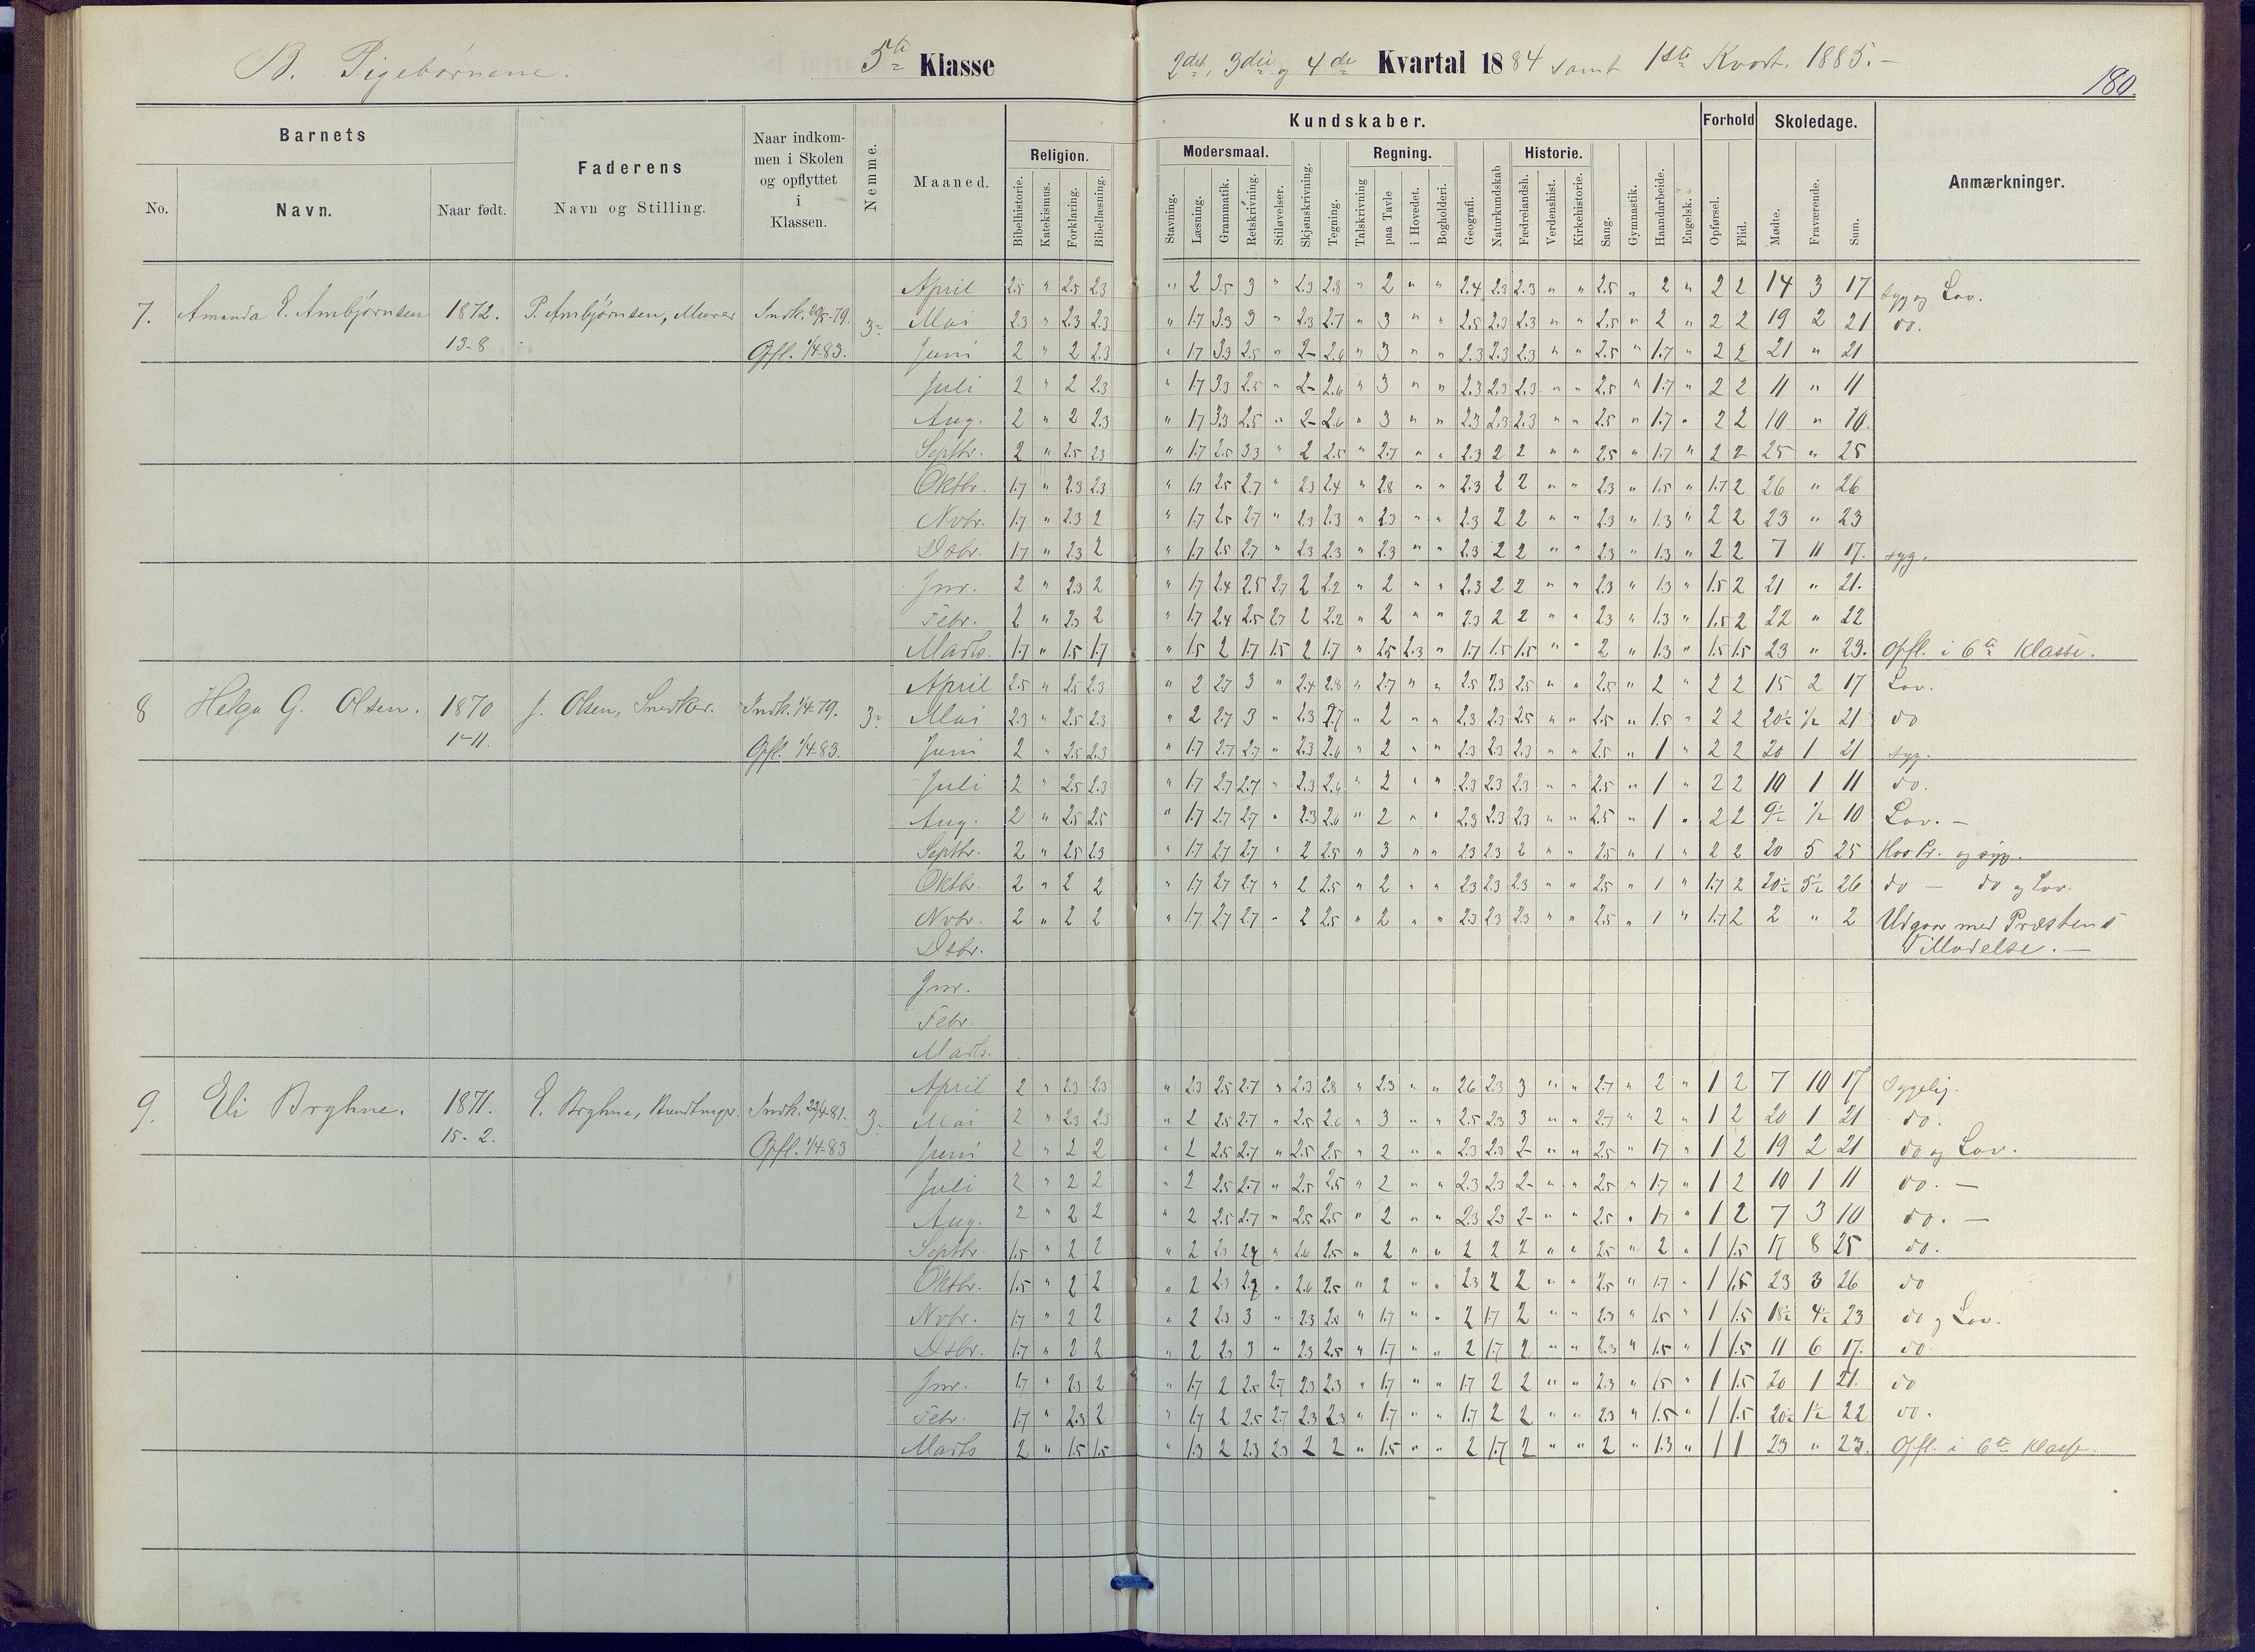 B. Pigebørnene. 5te Klasse 2det, 3die og 4de Kvartal 1884 samt 1ste Kvart. 1885.-
180.
Barnets
No. Navn. Naar født.
Faderens
Navn og Stilling.
Naar indkom-
men i Skolen
og opflyttet
i
Klassen.
Nemme.
Maaned.
Kundskaber.
Religion.
Bibelhistorie. Katekismus. Forklaring. Bibellæsning.
Modersmaal.
Stavning. Læsning. Grammatik. Retskrivning. Stiløvelser.
Skjønskrivning. Tegning.
Regning.
Talskrivning paa Tavle i Hovedet. Bogholderi.
Geografi. Naturkundskab
Historie.
Fædrelandsh. Verdenshist. Kirkehistorie.
Sang. Gymnastik. Haandarbeide. Engelsk.
Forhold
Opførsel. Flid.
Skoledage.
Mødte. Fraværende. Sum.
Anmærkninger.
7. Amanda E. Ambjørnsen 1872. P. Ambjørnsen, Murer
13-8
Opfl. 1/4-83.
3-
April 2.5 " 2.5 2.3 " 2 3.5 3 " 2.3 2.8 " 2 " " 2.4 2.3 2.3 " " 2.5 " 2 " 2 2 14 3 17 syg og Lov.
Mai 2.3 " 2.3 2.3 " 1.7 3.3 3 " 2.3 2.7 " 3 " " 2.5 2.3 2.3 " " 2.5 " 2 " 2 2 19 2 21 do.
Juni 2 " 2 2.3 " 1.7 3.3 2.5 " 2- 2.6 " 3 " " 2.3 2.3 2.3 " " 2.5 " 1.7 " 2 2 21 " 21
Juli 2 " 2 2.3 " 1.7 3.3 2.5 " 2- 2.6 " 3 " " 2.3 2.3 2.3 " " 2.5 " 1.7 " 2 2 11 " 11
Aug. 2 " 2 2.3 " 1.7 3.3 2.5 " 2- 2.6 " 3 " " 2.3 2.3 2.3 " " 2.5 " 1.7 " 2 2 10 " 10.
Septbr. 2 " 2.5 2.3 " 1.7 2.5 3.3 " 2 2.5 " 2.7 " " 2.3 2 2 " " 2.5 " 1.7 " 2 2 25 " 25
Oktbr. 1.7 " 2.3 2.3 " 1.7 2.5 2.7 " 2.3 2.4 " 2.8 " " 2.3 2 2 " " 2.3 " 1.5 " 1.7 2 26 " 26
Nvbr. 1.7 " 2.3 2 " 1.7 2.5 2.7 " 2.3 2.3 " 2.3 " " 2.3 2 2 " " 2.3 " 1.3 " 2 2 23 " 23
Dsbr. 1.7 " 2.3 2 " 1.7 2.5 2.7 " 2.3 2.3 " 2.3 " " 2.3 2 2 " " 2.3 " 1.3 " 2 2 7 11 17. syg.
Jnr. 2 " 2.3 2 " 1.7 2.4 2.5 2.7 2 2.2 " 2 " " 2.3 2 2 " " 2.3 " 1.3 " 1.5 2 21 " 21.
Febr. 2 " 2.3 2 " 1.7 2.4 2.5 2.7 2 2.2 " 2 " " 2.3 2 2 " " 2.3 " 1.3 " 1.5 2 22 " 22
Marts. 1.7 " 1.5 1.7 " 1.5 2 1.7 1.5 2 1.7 " 2.5 2.3 " 1.7 1.5 1.5 " " 2 " 1.3 " 1.5 1.5 23 " 23. Opfl. i 6te Klasse.
8 Helga G. Olsen. 1870 J. Olsen, Snedker. Indk. 1/4-79.
1-11.
Opfl. 1/4-83.
3-
April 2.5 " 2.5 2.3 " 2 2.7 3 " 2.4 2.8 " 2.7 " " 2.5 2.3 2.5 " " 2.5 " 2 " 2 2 15 2 17 Lov.
Mai 2.3 " 2.5 2.3 " 2 2.7 3 " 2.3 2.7 " 2 " " 2.3 2.3 2.5 " " 2.5 " 1.5 " 2 2 20½ ½ 21 do
Juni 2 " 2.5 2.3 " 1.7 2.7 2.7 " 2.3 2.6 " 2 " " 2.3 2.3 2.3 " " 2.5 " 1 " 2 2 20 1 21 syg.
Juli 2 " 2.5 2.3 " 1.7 2.7 2.7 " 2.3 2.6 " 2 " " 2.3 2.3 2.3 " " 2.5 " 1 " 2 2 10 1 11 do.
Aug. 2 " 2.5 2.5 " 1.7 2.7 2.7 " 2.3 2.6 " 2 " " 2.3 2.3 2.3 " " 2.5 " 1 " 2 2 9½ ½ 10 Lov. -
Septbr. 2 " 2.5 2.3 " 1.7 2.7 2.7 " 2 2.5 " 3 " " 2.3 2.3 2 " " 2.5 " 1 " 2 2 20 5 25 Hos Pr. og syg.
Oktbr. 2 " 2 2 " 1.7 2.7 2.7 " 2 2.5 " 2 " " 2.3 2.3 2.3 " " 2.5 " 1 " 1.7 2 20½ 5½ 26 do - do og Lov.
Nvbr. 2 " 2 2 " 1.7 2.7 2.7 " 2 2.5 " 2 " " 2.3 2.3 2.3 " " 2.5 " 1 " 1.7 2 2 " 2 Udgaar med Præstens
Dsbr. Tilladelse. -
Jnr.
Febr.
Marts.
9. Eli Bryhne. 1871. E. Bryhne,
15-2.
Opfl. 1/4-83
3-
April 2 " 2.3 2.3 " 2.3 2.5 2.7 " 2.3 2.8 " 2.3 " " 2.6 2.3 3 " " 2.7 " 2 " 1 2 7 10 17 Sygelig.
Mai 2 " 2.3 2.3 " 2 2.5 2.7 " 2.5 2.6 " 3 " " 2.5 2.3 3 " " 2.7 " 2 " 1 2 20 1 21 do.
Juni 2 " 2 2 " 2 2.5 2.7 " 2.5 2.5 " 2 " " 2.3 2.3 2- " " 2.5 " 1.7 " 1 2 19 2 21 do og Lov.
Juli 2 " 2 2 " 2 2.5 2.7 " 2.5 2.5 " 2 " " 2.3 2.3 2- " " 2.5 " 1.7 " 1 2 10 1 11 do. -
Aug. 2 " 2 2 " 2 2.5 2.7 " 2.5 2.5 " 2 " " 2.3 2.3 2- " " 2.5 " 1.7 " 1 2 7 3 10 do. -
Septbr. 1.5 " 2 2 " 2 2.3 2.7 " 2.6 2.5 " 2 " " 2 2 2 " " 2.5 " 2 " 1 1.5 17 8 25 do.
Oktbr. 1.5 " 2 2 " 2 2.3 2.7 " 2.6 2.5 " 2 " " 2.3 2 2 " " 2.5 " 1.7 " 1 1.5 23 3 26 do
Nvbr. 1.7 " 2 2 " 2 2.3 3 " 2.3 2.5 " 1.7 " " 2 1.7 2 " " 2.3 " 1.5 " 1 1.5 18½ 4½ 23 do og Lov.
Dsbr. 1.7 " 2 2 " 2 2.3 3 " 2.3 2.5 " 1.7 " " 2 1.7 2 " " 2.3 " 1.5 " 1 1.5 11 6 17. do
Jnr. 1.7 " 2.3 2 " 1.7 2 2.5 2.7 2.3 2.3 " 1.7 " " 1.7 2 2 " " 2.3 " 1.5 " 1 1.5 20 1 21. do
Febr. 1.7 " 2.3 2 " 1.7 2 2.5 2.7 2.3 2.3 " 1.7 " " 1.7 2 2 " " 2.3 " 1.5 " 1 1.5 20½ 1½ 22 do.
Marts 2 " 1.5 1.5 " 1.3 2 2.3 2.3 2 2 " 1.5 " " 2 1.7 2 " " 2 " 1.3 " 1 1 23 " 23. Opfl. i 6te Klasse.